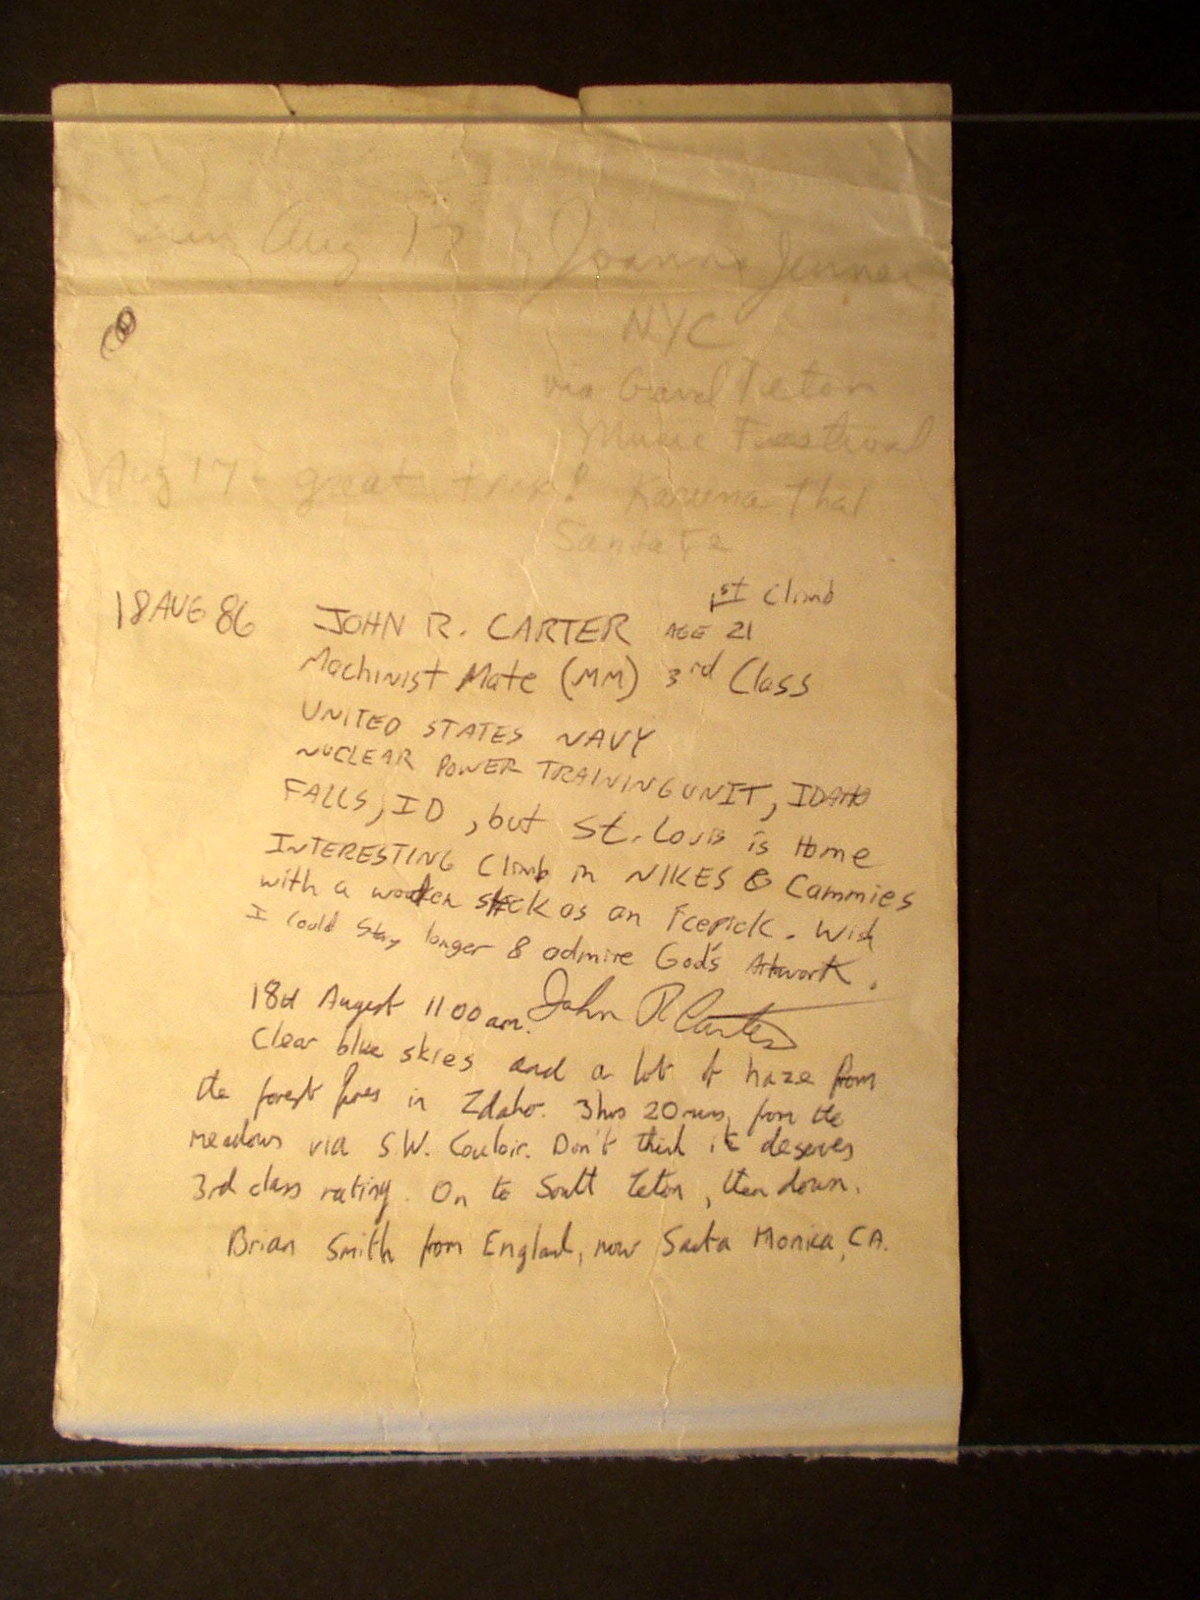 Sun Aug 17 Joanna Jenner
NYC
via Grand Teton
Music Festival
Aug 17 - great trip! Karima Thal
Santa Fe
1st Climb
18 AUG 86 JOHN R. CARTER AGE 21
Machinist Mate (MM) 3rd Class
UNITED STATES NAVY
NUCLEAR POWER TRAINING UNIT, IDAHO
FALLS, ID, but St. Louis is Home
INTERESTING Climb in NIKES & Cammies
with a wooden stick as an Icepick. Wish
I could stay longer & admire God's Artwork.
John R Carter
18th August 11 00 am.
Clear blue skies and a lot of haze from
the forest fires in Idaho. 3hrs 20mins from the
meadows via S.W. Couloir. Don't think it deserves
3rd class rating. On to South Teton, then down.
Brian Smith from England, now Santa Monica, CA.